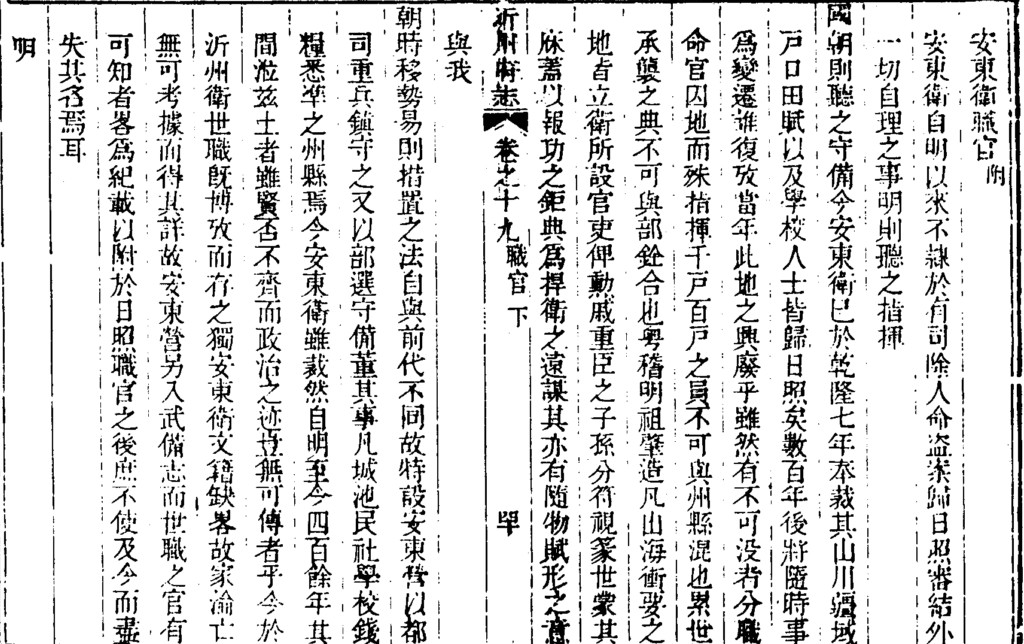 安東衛職官附
安東衛自明以來不隸於有司除人命盗案歸日照審結外
一切自理之事明則聽之指揮
國朝則聽之守備今安東衛已於乾隆七年奉裁其山川疆域
戸口田賦以及學校人士皆歸日照矣數百年後將隨時事
爲變遷誰復攷當年此地之興廢乎雖然有不可没者分職
命官因地而殊指揮千戸百戸之員不可與州縣混也累世
承襲之典不可與部銓合也粤稽明祖肇造凡山海衝要之
地皆立衛所設官吏俾勳戚重臣之子孫分符視篆世蒙其
庥蓋以報功之鉅典爲捍衛之遠謀其亦有隨物賦形之意
沂州府志 卷之十九 職官下
與我
朝時移勢易則措置之法自與前代不同故特設安東營以都
司重兵鎮守之又以部選守備董其事凡城池民社學校錢
糧悉準之州縣焉今安東衛雖裁然自明至今四百餘年其
間涖兹土者雖賢否不齊而政治之迹豈無可傳者乎今於
沂州衛世職既博攷而存之獨安東衛文籍缺畧故家淪亡
無可考據而得其詳故安東營另入武備志而世職之官有
可知者畧爲紀載以附於日照職官之後庶不使及今而盡
失其名焉耳
明